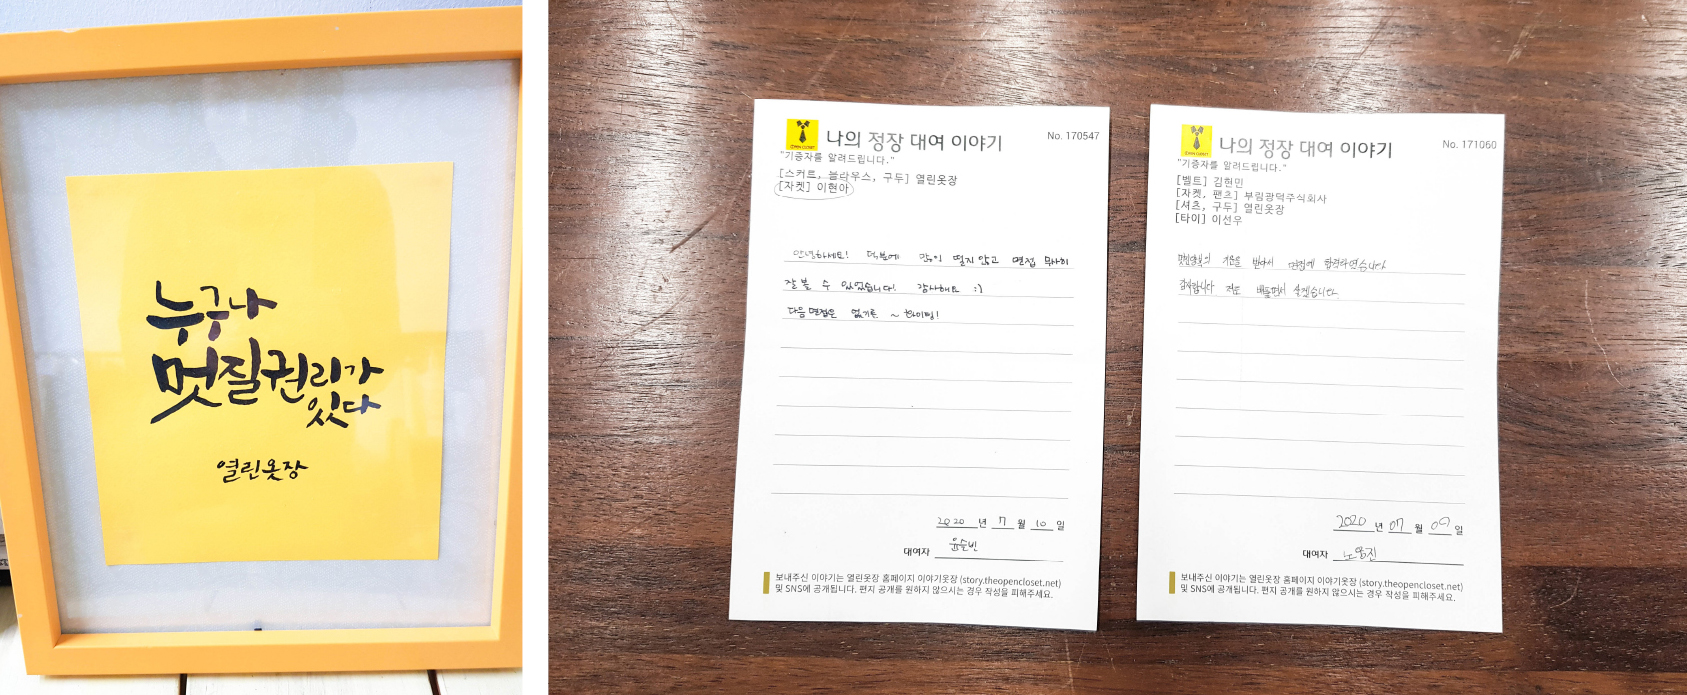 누구나
멋질권리가
있다
열린옷장
OPEN CLOSET
나의 정장 대여 이야기
No. 170547
"기증자를 알려드립니다."
[스커트, 블라우스, 구두] 열린옷장
[자켓] 이현아
안녕하세요! 덕분에 많이 떨지 않고 면접 무사히
잘 볼 수 있었습니다. 감사해요 :)
다음 면접은 없기를 ~ 화이팅!
2020 년 7 월 10 일
대여자 윤슬빈
보내주신 이야기는 열린옷장 홈페이지 이야기옷장 (story.theopencloset.net)
및 SNS에 공개됩니다. 편지 공개를 원하지 않으시는 경우 작성을 피해주세요.
OPEN CLOSET
나의 정장 대여 이야기
No. 171060
"기증자를 알려드립니다."
[벨트] 김현민
[자켓, 팬츠] 부림광덕주식회사
[셔츠, 구두] 열린옷장
[타이] 이선우
기운을 받아서 면접에 합격하였습니다
감사합니다 저도 베풀면서 살겠습니다.
2020 년 07 월 09 일
대여자
보내주신 이야기는 열린옷장 홈페이지 이야기옷장 (story.theopencloset.net)
및 SNS에 공개됩니다. 편지 공개를 원하지 않으시는 경우 작성을 피해주세요.